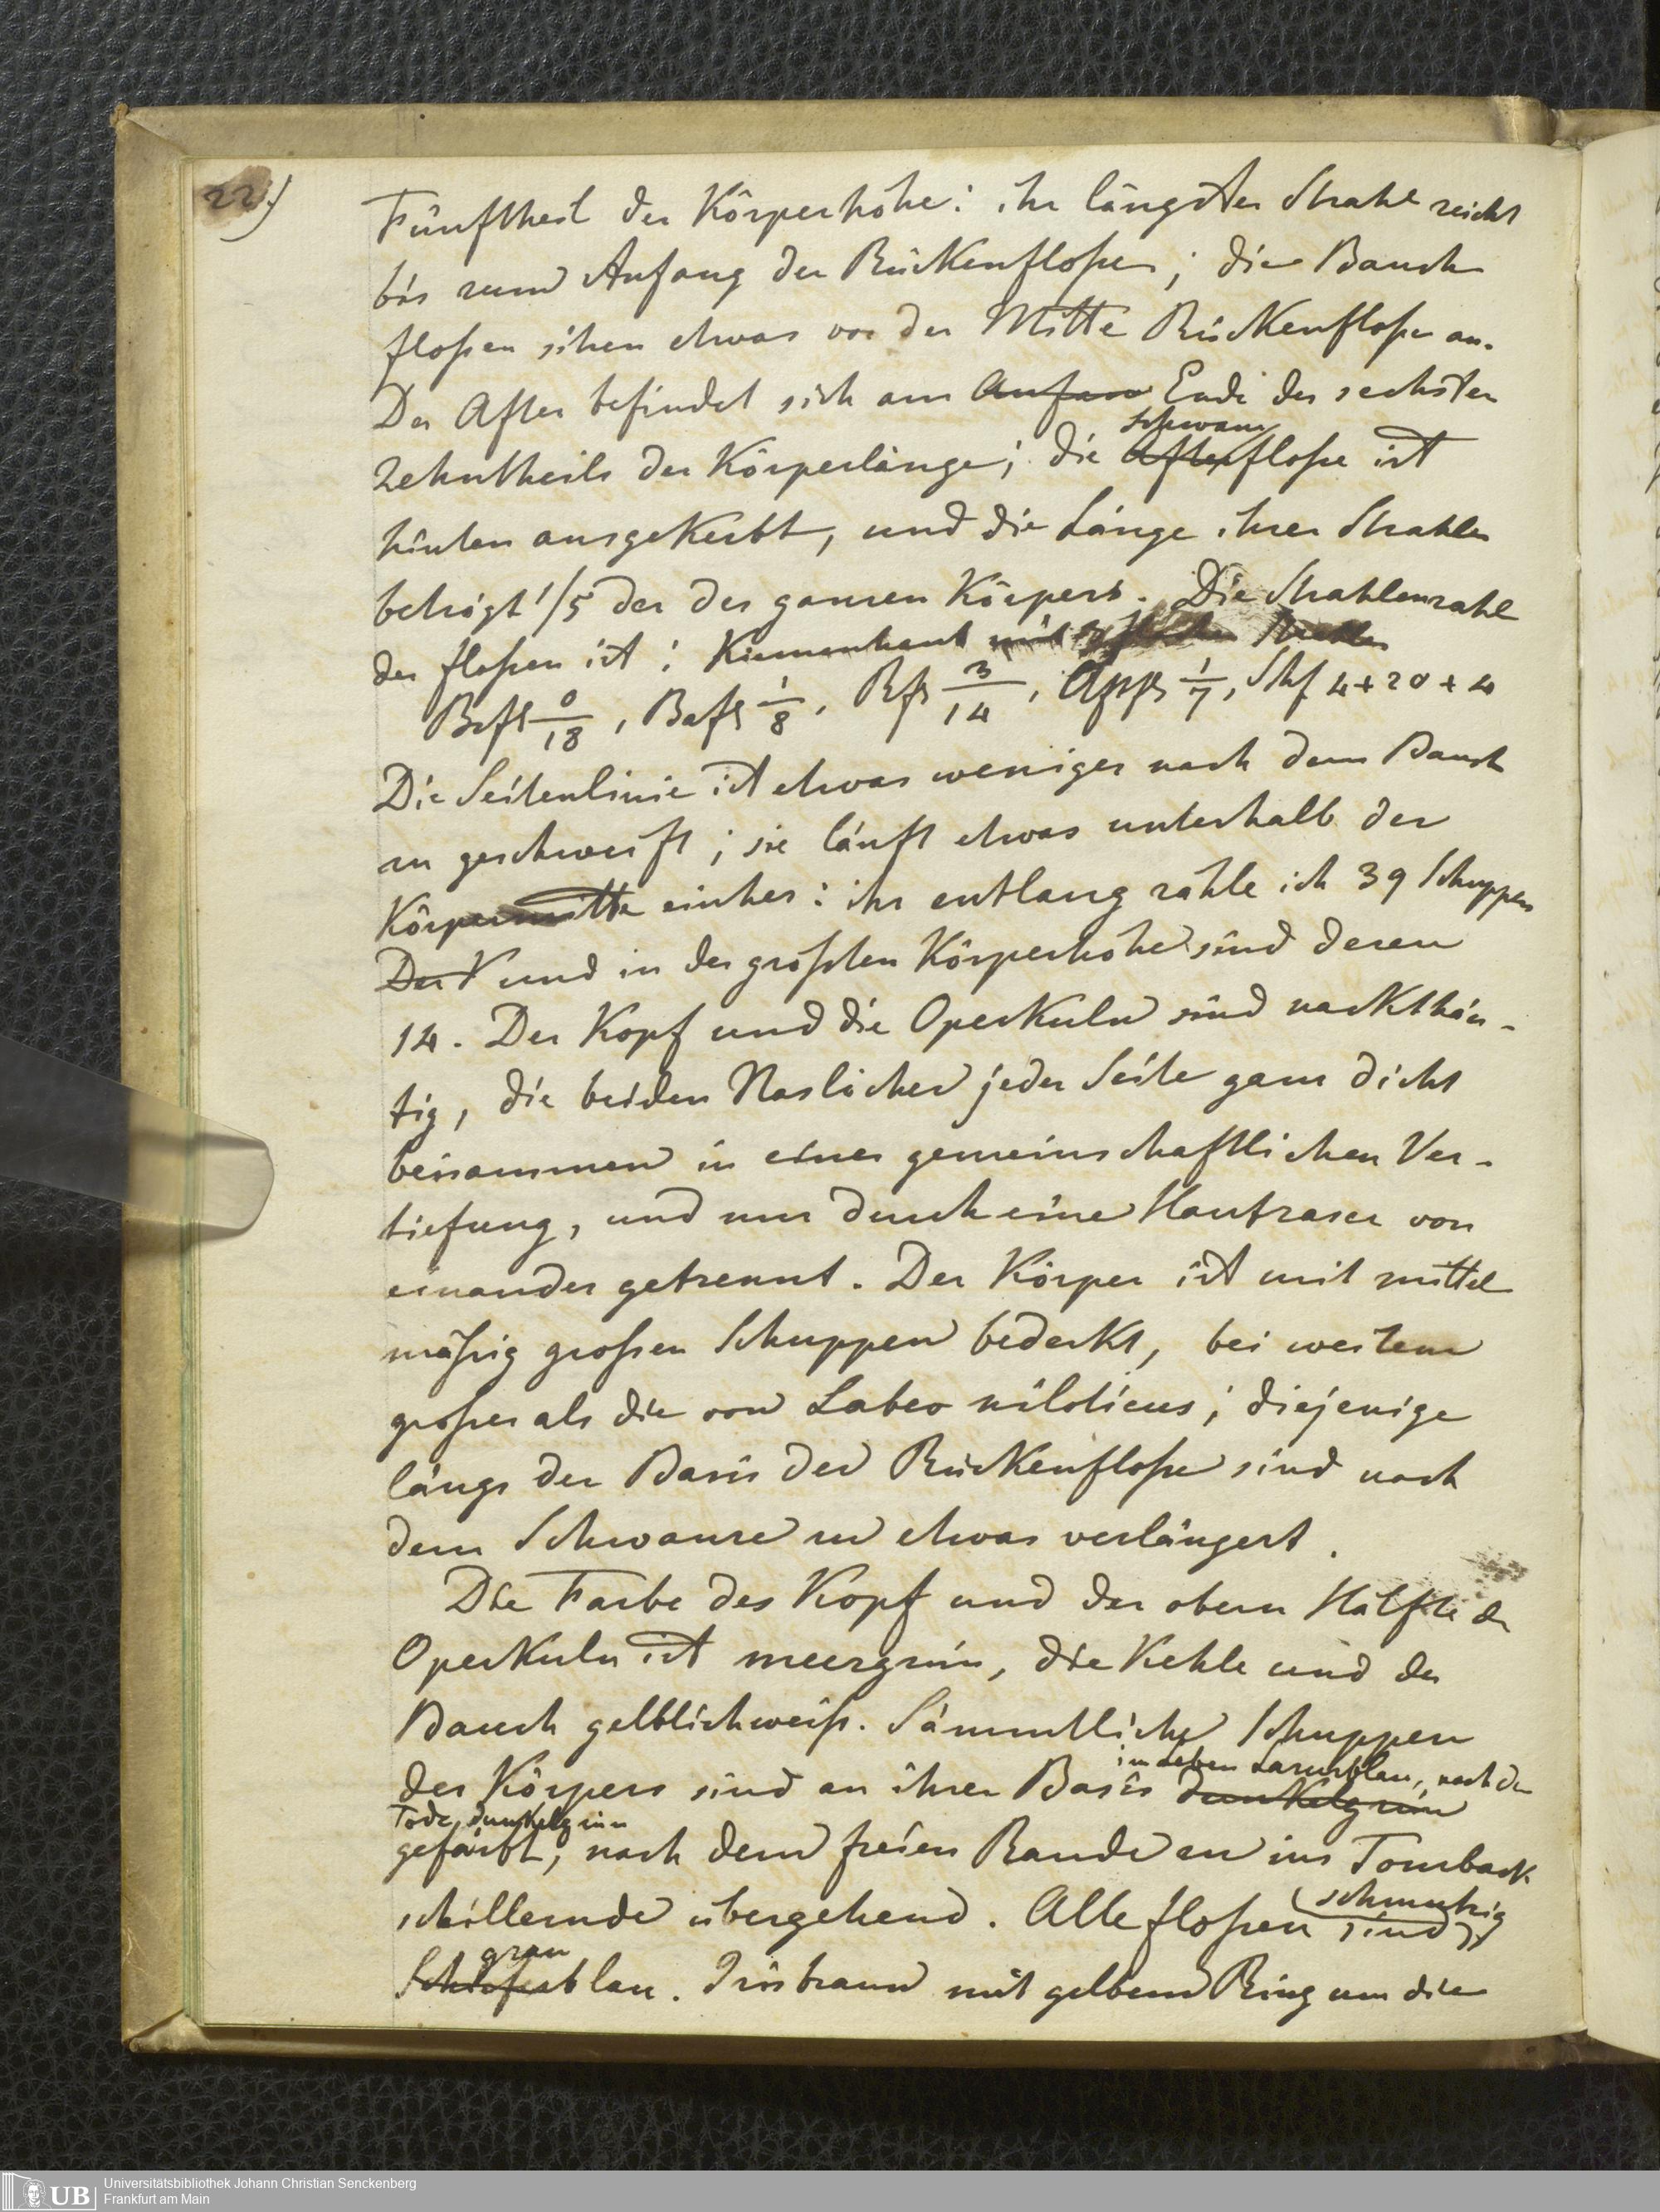 22.)
Fünftheil der Körperhöhe: ihr längster Strahl reicht
bis zum Anfang der Rückenfloße; die Bauch
floßen sitzen etwas vor der Mitte Rückenfloße an.
Der After befindet sich am Anfan Ende des sechsten
schwanz
Zehntheils der Körperlänge; die Afterfloße ist
hinten ausgekerbt, und die Länge ihrer Strahlen
beträgt 1/5 der des ganzen Körpers. Die Strahlenzahl
der floßen ist: Kiemenhaut mit Strahlen
Brfl 0/18, Bafl 1/8, Rfl 3/14, Affl 1/7, Shf 4+20+4
Die Seitenlinie ist etwas weniger nach dem Bauch
zu geschweift; sie läuft etwas unterhalb der
Körpermitte einher: ihr entlang zähle ich 39 Schuppen
Der K und in der größten Körperhöhe sind deren
14. Der Kopf und die Operkuln sind nackthäu-
tig, die beiden Naslöcher jeder Seite ganz dicht
beisammen in einer gemeinschaftlichen Ver-
tiefung, und nur durch eine Hautfaser von
einander getrennt. Der Körper ist mit mittel
mäßig großen Schuppen bedeckt, bei weitem
großer als die von Labeo niloticus; diejenige
längs der Basis der Rückenfloße sind nach
dem Schwanze zu etwas verlängert.
Die Farbe des Kopf und der obern Hälfte der
Operkuln ist meergrün, die Kehle und der
Bauch gelblichweiß. Sämmtliche Schuppen
im Leben Lazurblau, nach dem
des Körpers sind an ihrer Basis dunkelgrün
Tode dunkelgrün
gefärbt, nach dem freien Rande zu ins Tomback
schillernde übergehend. Alle floßen sind
schmutzig
grau
Schieferblau. Iris braun mit gelbem Ring um die
Universitätsbibliothek Johann Christian Senckenberg
Frankfurt am Main
UB